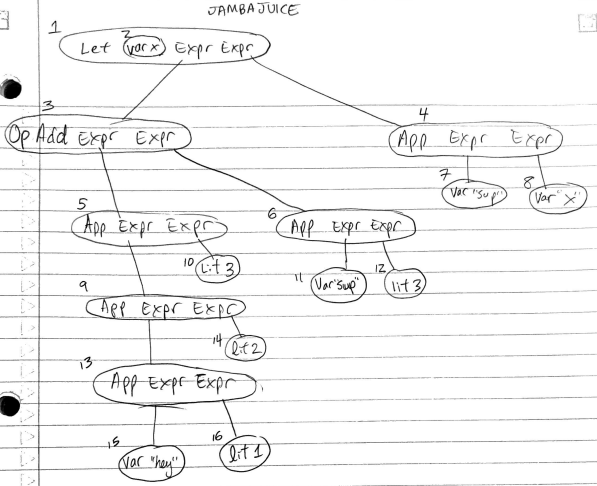 JAMBAJUICE
1
2
Let var x Expr Expr
3
4
Op Add Expr Expr
App Expr Expr
7
8
Var "sup"
Var "x"
5
6
App Expr Expr
App Expr Expr
10
Lit 3
11
12
Var "sup"
lit 3
9
App Expr Expr
14
lit 2
13
App Expr Expr
15
16
Var "hey"
lit 1